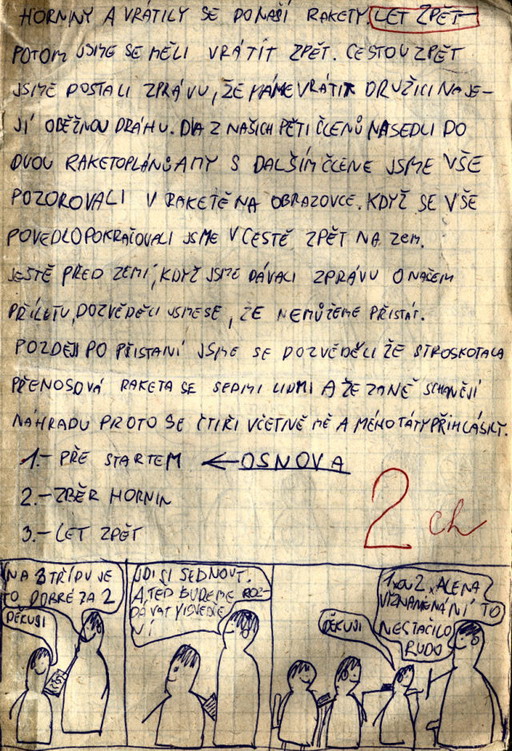 HORNINY A VRÁTILY SE DO NAŠÍ RAKETY. LET ZPĚT
POTOM JSME SE MĚLI VRÁTIT ZPĚT. CESTOU ZPĚT
JSME DOSTALI ZPRÁVU, ŽE MÁME VRÁTIT DRUŽICI NA JE-
JÍ OBĚŽNOU DRÁHU. DVA Z NAŠICH PĚTI ČLENŮ NASEDLI DO
DVOU RAKETOPLÁNŮ A MY S DALŠÍM ČLENE JSME VŠE
POZOROVALI V RAKETĚ NA OBRAZOVCE. KDYŽ SE VŠE
POVEDLO POKRAČOVALI JSME V CESTĚ ZPĚT NA ZEM.
JEŠTĚ PŘED ZEMÍ, KDYŽ JSME DÁVALI ZPRÁVU O NAŠEM
PŘÍLETU, DOZVĚDĚLI JSME SE, ŽE NEMŮŽEME PŘISTÁT.
POZDĚJI PO PŘISTANÍ JSME SE DOZVĚDĚLI ŽE STROSKOTALA
PŘENOSOVÁ RAKETA SE SEDMI LIDMI A ŽE ZA NĚ SCHANĚJÍ
NÁHRADU PROTO SE ČTIŘI VČETNĚ MĚ A MÉHO TÁTY PŘIHLÁSILY.
1.- PŘE STARTEM ← OSNOVA
2.- ZBĚR HORNIN
3.- LET ZPĚT
2 ch
NA 3 TŘÍDU JE
TO DOBRÉ ZA 2
DĚKUSI
JDI SI SEDNOUT.
A TEĎ BUDEME ROZ-
DÁVAT VYSVĚDČE
NÍ
DĚKUSI
1xou 2 x ALENA
VIZNAMENÁNÍ TO
NESTAČILO
RUDO